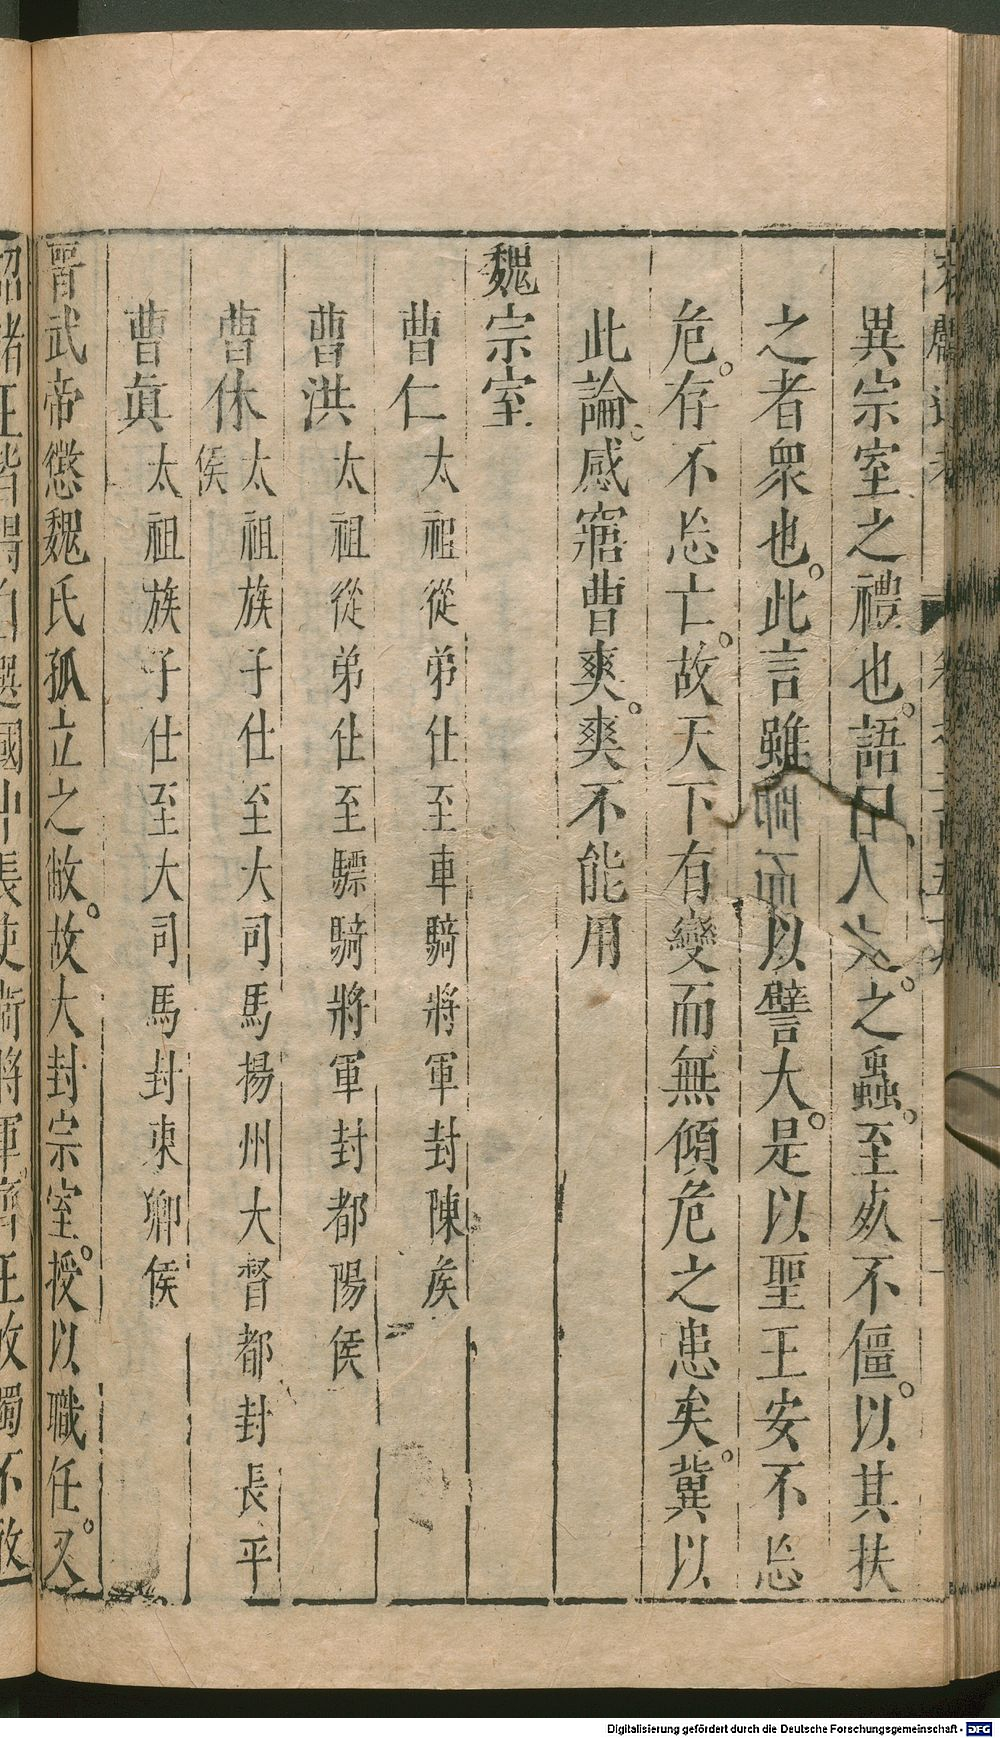 異宗室之禮也語曰人之蟲至死不僵以其扶
之者衆也此言雖而以譬大是以聖王安不忘
危存不忘亡故天下有變而無傾危之患矣冀以
此論感寤曹爽爽不能用
魏宗室
曹仁太祖從弟仕至車騎將軍封陳侯
曹洪太祖從弟仕至驃騎將軍封都陽侯
曹休太祖族子仕至大司馬揚州大督都封長平
侯
曹眞太祖族子仕至大司馬封東鄉侯
晋武帝懲魏氏孤立之敝故大封宗室授以職任又
詔諸王皆得自選國中長吏衛將軍齊王攸獨不敢
Digitalisierung gefördert durch die Deutsche Forschungsgemeinschaft - DFG